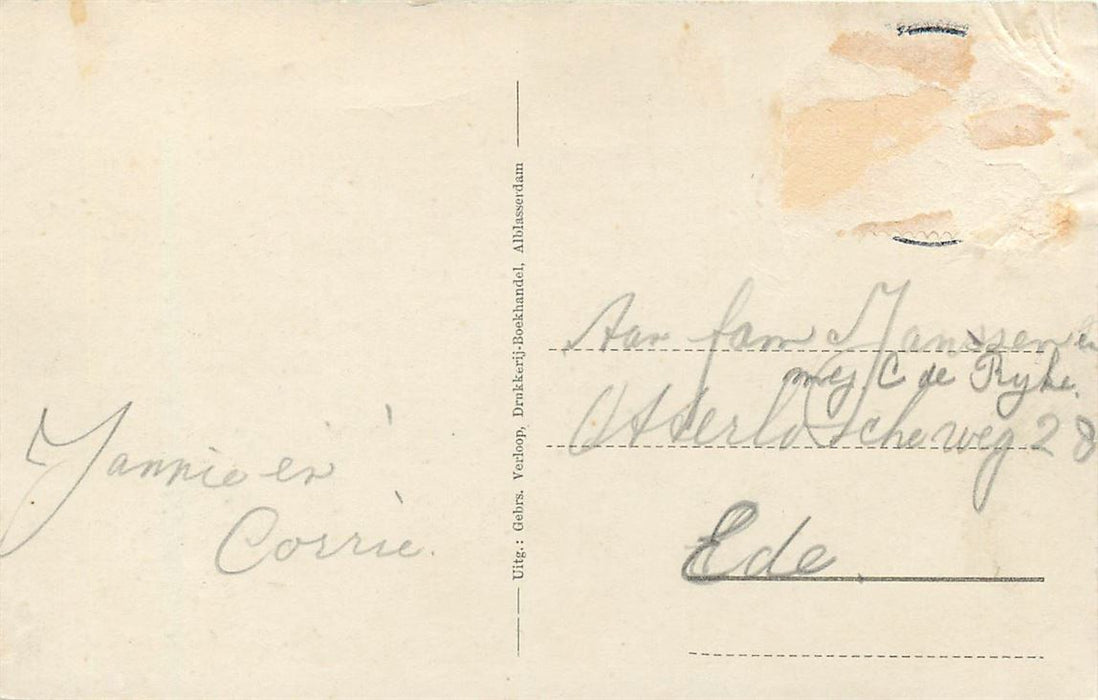 Jannie en
Corrie.
Uitg.: Gebrs. Verloop, Drukkerij-Boekhandel, Alblasserdam
Aan fam Janssen en
mej C de Ryke.
Otterloscheweg 28
Ede.